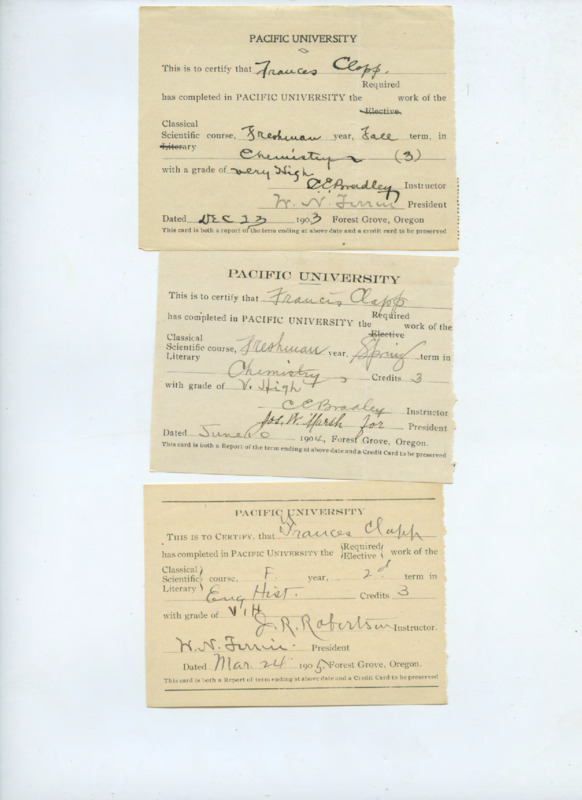 PACIFIC UNIVERSITY
This is to certify that Frances Clapp.
Required
has completed in PACIFIC UNIVERSITY the work of the
Elective
Classical
Scientific course, Freshman year, Fall term, in
Literary
Chemistry (3)
with a grade of very High
C.E. Bradley Instructor
W. N. Ferrin President
Dated DEC 23 1903 Forest Grove, Oregon
This card is both a report of the term ending at above date and a credit card to be preserved
PACIFIC UNIVERSITY
This is to certify that Francis Clapp
Required
has completed in PACIFIC UNIVERSITY the work of the
Elective
Classical
Scientific course, Freshman year, Spring term in
Literary
Chemistry, Credits 3
with grade of V. High
C E Bradley Instructor
Jos. W. Marsh for President
Dated June 1904, Forest Grove, Oregon.
This card is both a Report of the term ending at above date and a Credit Card to be preserved
PACIFIC UNIVERSITY
THIS IS TO CERTIFY, that Frances Clapp
has completed in PACIFIC UNIVERSITY the (Required work of the
Elective)
Classical
Scientific course, F. year, 2d term in
Literary
Eng Hist. Credits 3
with grade of V.H
J. R. Robertson Instructor.
W. N. Ferrin. President
Dated Mar. 24 1905 Forest Grove, Oregon.
This card is both a Report of term ending at above date and a Credit Card to be preserved